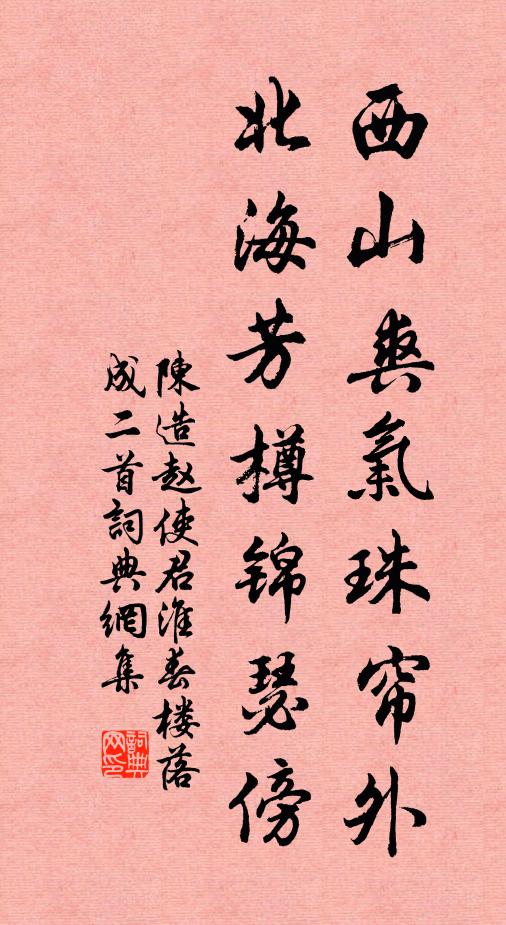 西山爽氣珠帘外
北海芳樽锦瑟傍
陳造赵使君淮春楼落
成二首詞典網集
詞典
网印